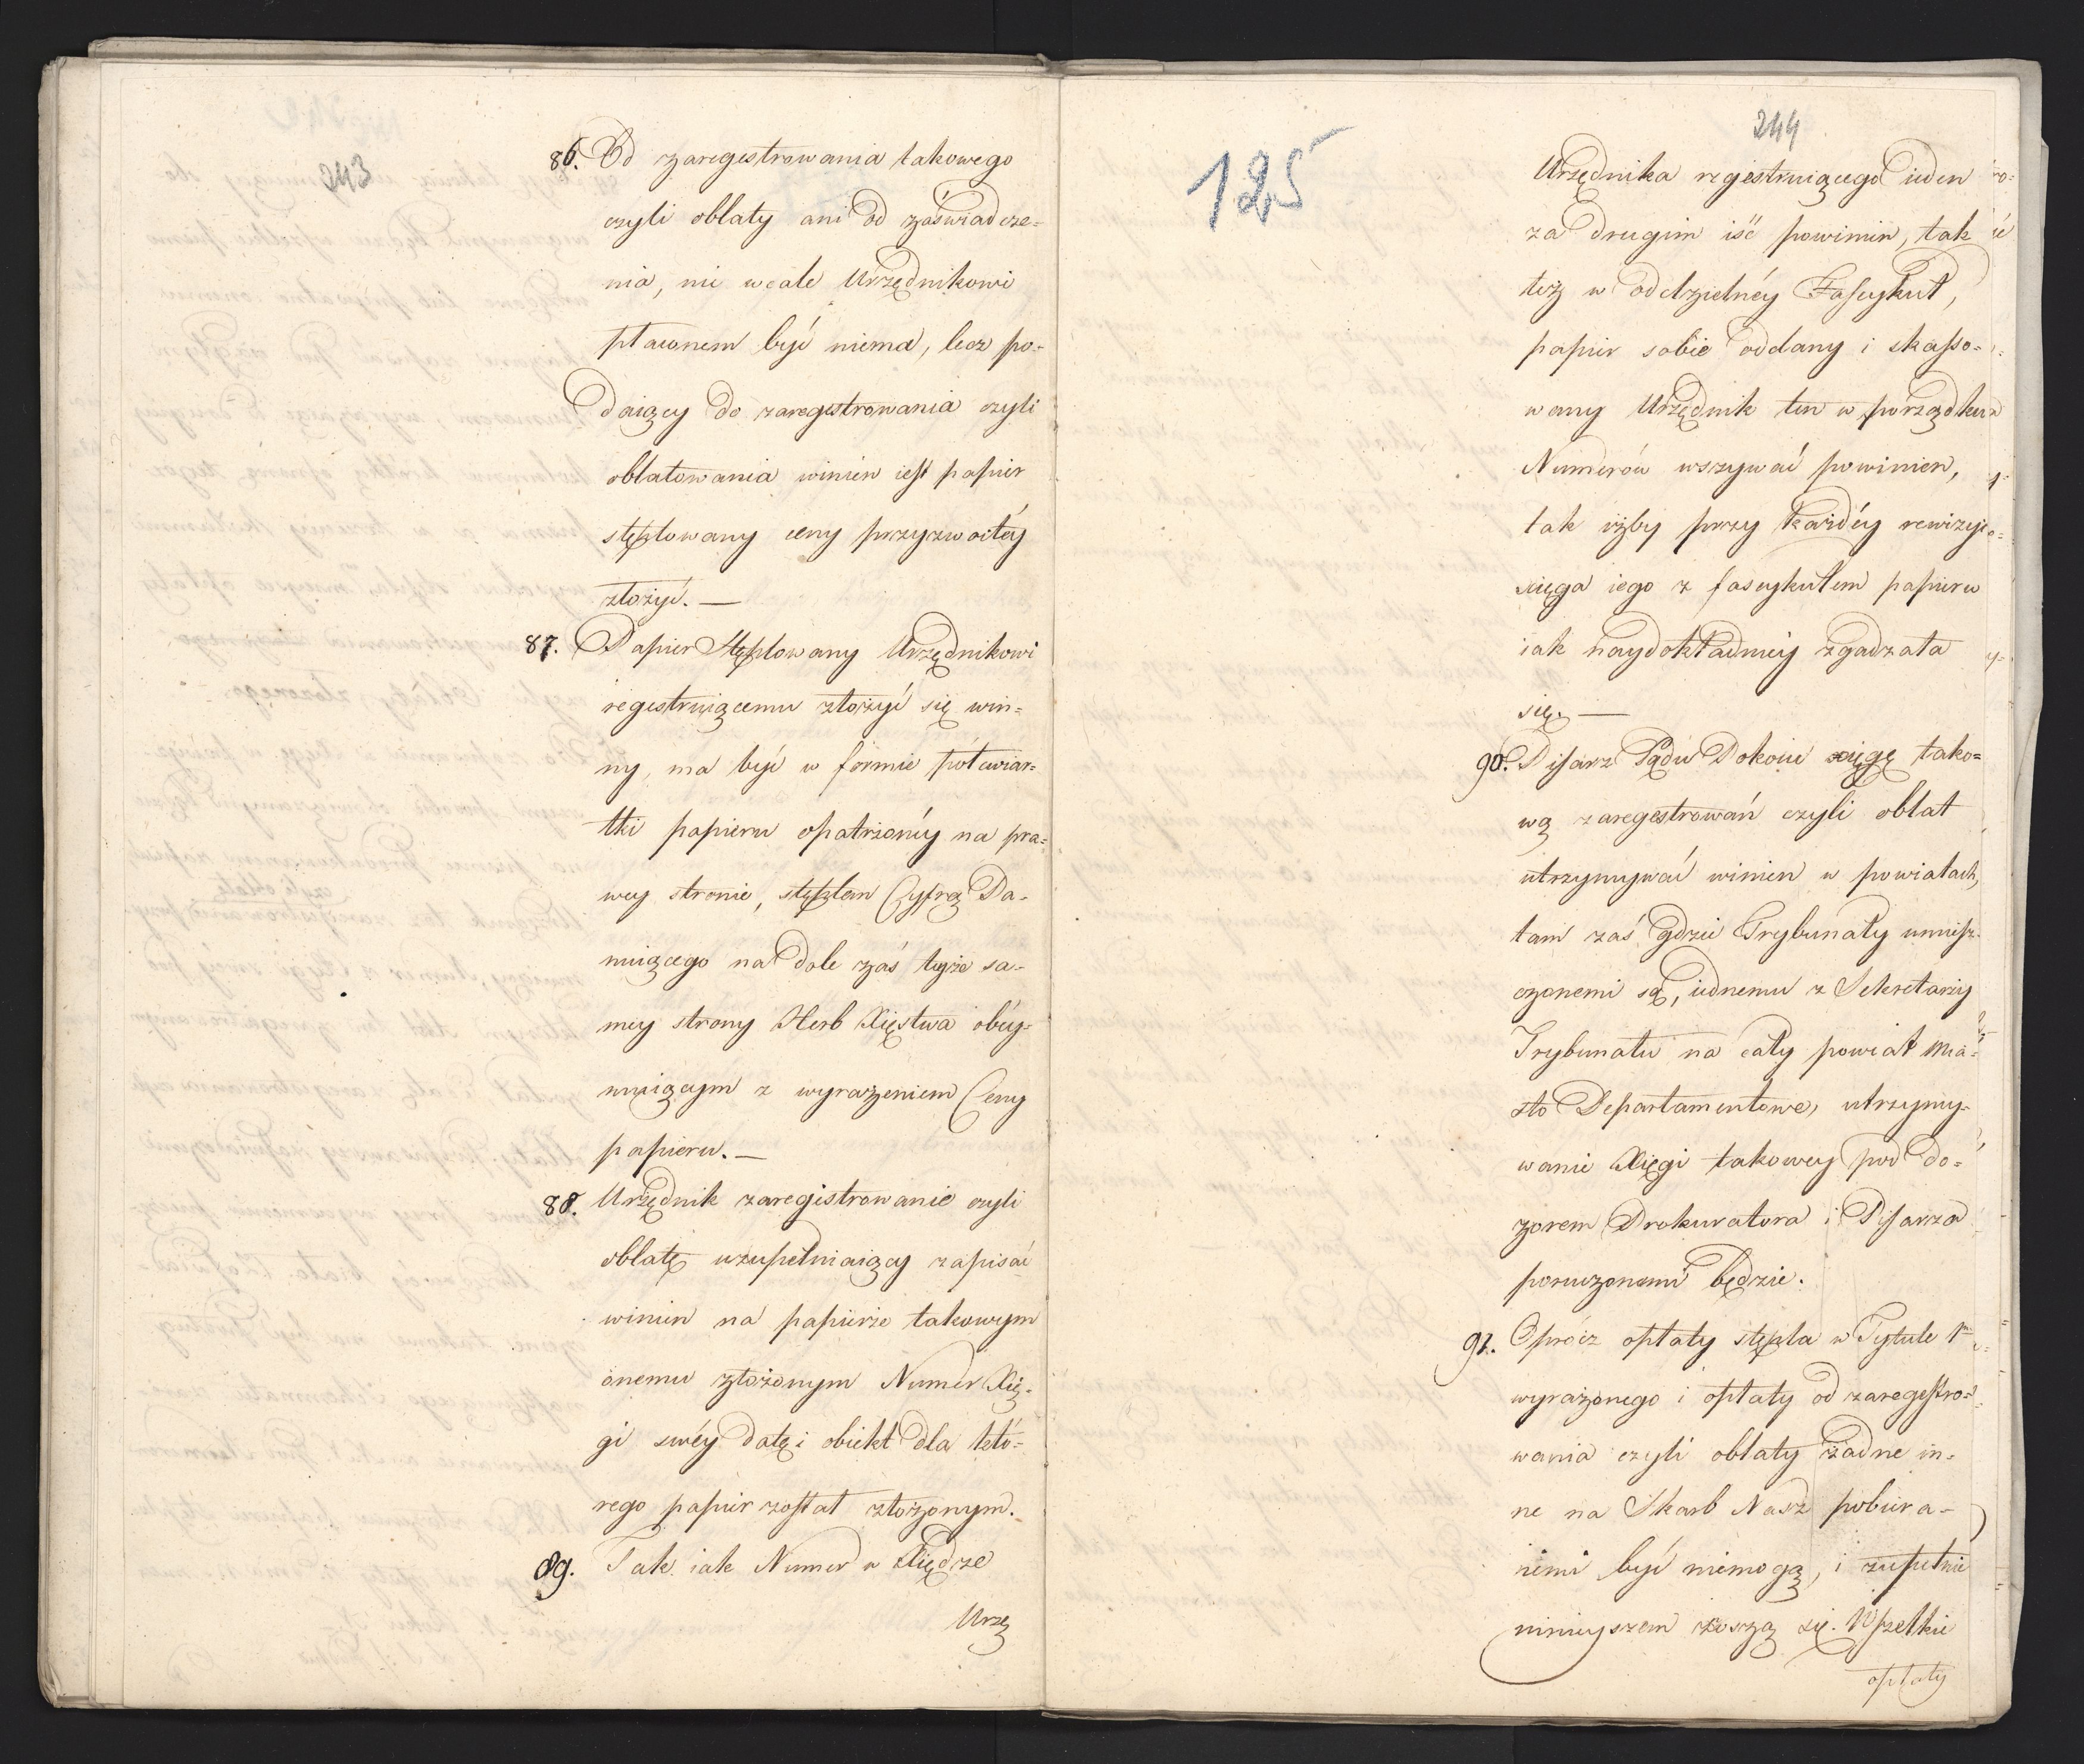 243
86. Od zaregestrowania takowego
czyli oblaty ani od zaświadcze=
nia, nic wcale Urzędnikowi
płaconem być niema, lecz po=
daiący do zaregestrowania czyli
oblatowania winien iest papier
stęplowany ceny przyzwoitéy
złożyć. —
87. Papier Stęplowany Urzędnikowi
regestruiącemu złożyć się win=
ny, ma być w formie pół ćwiar=
tki papieru opatrzonéy na pra=
wey stronie, stęplem Cyfrą Pa=
nuiącego na dole zaś teyże sa=
mey strony Herb Xięstwa obéy=
muiącym z wyrażeniem Ceny
papieru. —
88. Urzędnik zaregistrowanie czyli
oblatę uzupełniaiący zapisać
winien na papierze takowym
onemu złożonym Numer Xię=
gi swéy datę i obiekt dla któ=
rego papier został złożonym.
89. Tak iak Numer w Xiędze
Urzę
125
244
Urzędnika regestruiącego ieden
za drugim iść powinien, tak
też w oddzielnéy Fascykuł,
papier sobie oddany i skasso=
wany Urzędnik ten w porządku
Numerów wszywać powinien,
tak iżby przy każdéy rewizyi
xięga iego z fascykułem papieru
iak naydokładniéy zgadzała
się. —
90. Pisarz Sądu Pokoiu xięgę tako=
wą zaregestrowań czyli oblat
utrzymywać winien w powiatach,
tam zaś gdzie Trybunały umiesz=
czonemi są, iednemu z Sekretarzy
Trybunału na cały powiat mia=
sto Departamentowe, utrzymy=
wanie Xięgi takowey pod do=
zorem Prokuratora i Pisarza
poruczonem będzie.
91. Oprócz opłaty stępla w Tytule 1m
wyrażonego i opłaty od zaregestro=
wania czyli oblaty żadne in=
ne na Skarb Nasz pobiera=
nemi być niemogą, i zupełnie
ninieyszem znoszą się. Wszelkie
opłaty